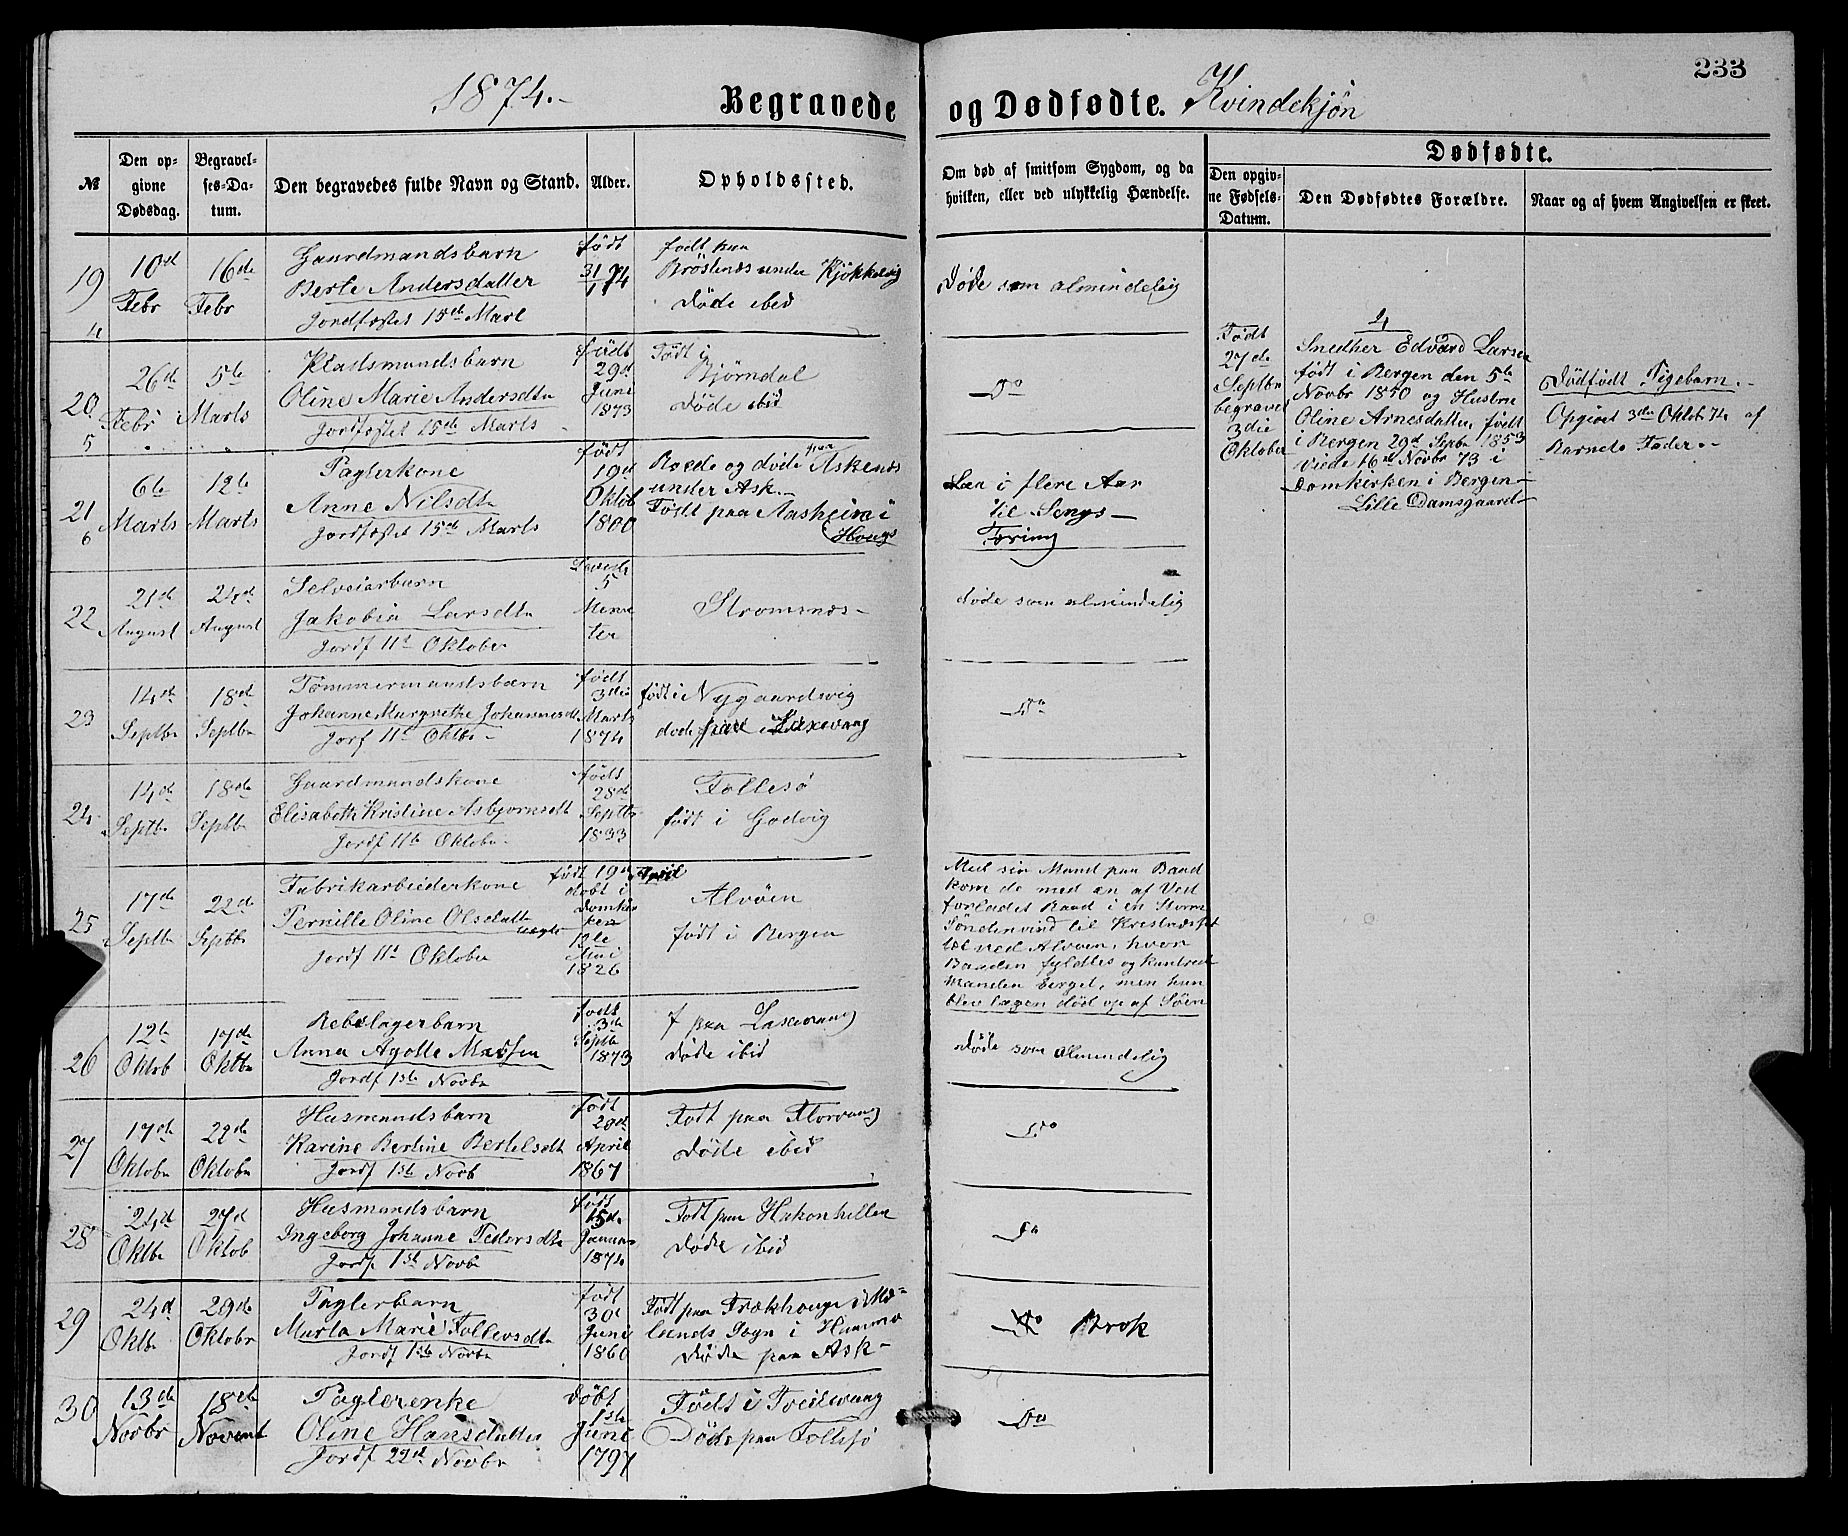 233
1874.-
Begravede og Dødfødte. Kvindekjön
№
Den opgivne Dødsdag.
Begravelses-Datum.
Den begravedes fulde Navn og Stand.
Alder.
Opholdssted.
Om død af smitsom Sygdom, og da
hvilken, eller ved ulykkelig Hændelse.
Dødfødte.
Den opgivne Fødsels-Datum.
Den Dødfødtes Forældre.
Naar og af hvem Angivelsen er skeet.
19
4
10de
Febr
16de
Febr
Gaardmandsbarn
Berte Andersdatter
Jordfæstet 15de Marts
født
31/1 74
født paa
under Kjökkelvig
Døde ibid
Døde som almindelig
20
5
26de
Febr
5te
Marts
Pladsmandsbarn
Oline Marie Andersdtr
Jordfæstet 15de Marts
født
29d
Juni
1873
Født i
Björndal
Døde ibid
Do
21
6
6te
Marts
12te
Marts
Anne Nilsdtr
Jordfæstet 15de Marts
født
19d
Oktob
1800
Boede og døde paa Askenæs
under Ask.-
Født paa Aasheim i
Haugs
Laa i flere Aar
til Sengs-
Tæring
22
21de
August
24de
August
Selveierbarn
Jakobia Larsdtr
Jordf 11te Oktober
5
Strømsnæs-
Døde som almindelig
23
14de
Septbr
18de
Septbr
Tømmermandsbarn
Johanne Margrethe Johannesdtr
Jorf 11te Oktbr-
født
3die
Marts
1874
født i Nygaardsvig
døde i Laxevaag
Do
24
14de
Septbr
18de
Septbr
Gaardmandskone
Elisabeth Kristine Asbjørnsdtr
Jordf 11te Oktober
født
28de
Septbr
1833
Follesö
født i Godvig
25
17de
Septbr
22de
Septbr
Fabrikarbeiderkone
Pernille Oline Olsdatter
Jordf 11te Oktober
født 19de April
døbt i
Domkirken
12te
Mai
1826
Alvöen
født i Bergen
Med sin Mand paa Baad
kom de med en af Ved
forladet Baad i en Storm
Søndenvind til
tæt ved Alvøen, hvor
Baaden fyldtes og kuntrede
Manden berget, men hun
blev tagen død op af Søen
26
12te
Oktob
17de
Oktbr
Rebslagerbarn
Anna Agotte Madsen
Jordf 1ste Novbr
født
3de
Septb
1873
f paa Laxevaag
Døde ibid
Døde som almindelig
27
17de
Oktobr
22de
Oktobr
Husmandsbarn
Karine Bertine Bertelsdtr
Jordf 1ste Novb
født
29de
April
1867
Født paa Florvaag
Døde ibid
Do
28
24d
Oktbr
27d
Oktob
Husmandsbarn
Ingeborg Johanne Pedersdtr
Jordf 1ste Novbr
født
15de
Januar
1874
Født paa Hakonhellen
Døde ibid
Do
29
24d
Oktbr
29de
Oktobr
Marta Marie Tollevsdtr
Jordf 1ste Novbr
født
30d
Juni
1860
Født paa
lands Sogn i Hammer
Døde paa Ask-
Do Brok
30
13de
Novbr
18de
Novemb
Oline Hansdatter
Jordf 22de Novbr
Døbt
1ste
Juni
1797
Født i Tveitevaag
Døde paa Follesö
Do
Født
27de
Septbr
begravet
3die
Oktober
2
Snedker Edvard Larsen
født i Bergen den 5te
Novbr 1850 og Hustru
Oline Arnesdatter, født
i Bergen 29d Septbr 1853
Viede 16de Novbr 73 i
Domkirken i Bergen-
Lille Damsgaard-
Dødfødt Pigebarn.-
Opgivet 3die Oktob 74 af
Barnets Fader.-